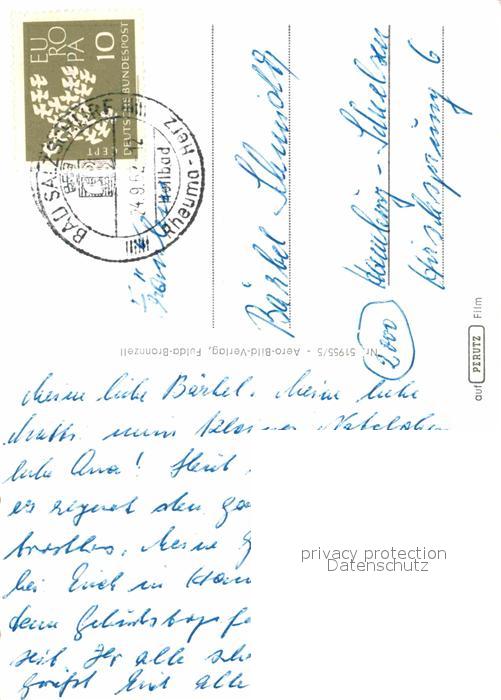 EUROPA
10
DEUTSCHE BUNDESPOST
CEPT
BAD SALZSCHLIRF
24.9.62
Heilbad
Rheuma - Herz
Fräulein
Bärbel Schmidt
Hamburg-
Hirschsprung 6
2000
Nr. 51955/5 - Aero-Bild-Verlag, Fulda-Bronnzell
auf PERUTZ Film
Meine liebe Bärbel, Meine liebe
mein kleiner
liebe Oma! Heut
es regnet den
trostlos. Meine
bei Euch in Ham
denn Geburtstags
seit Ihr alle
grüßt Euch alle
privacy protection
Datenschutz